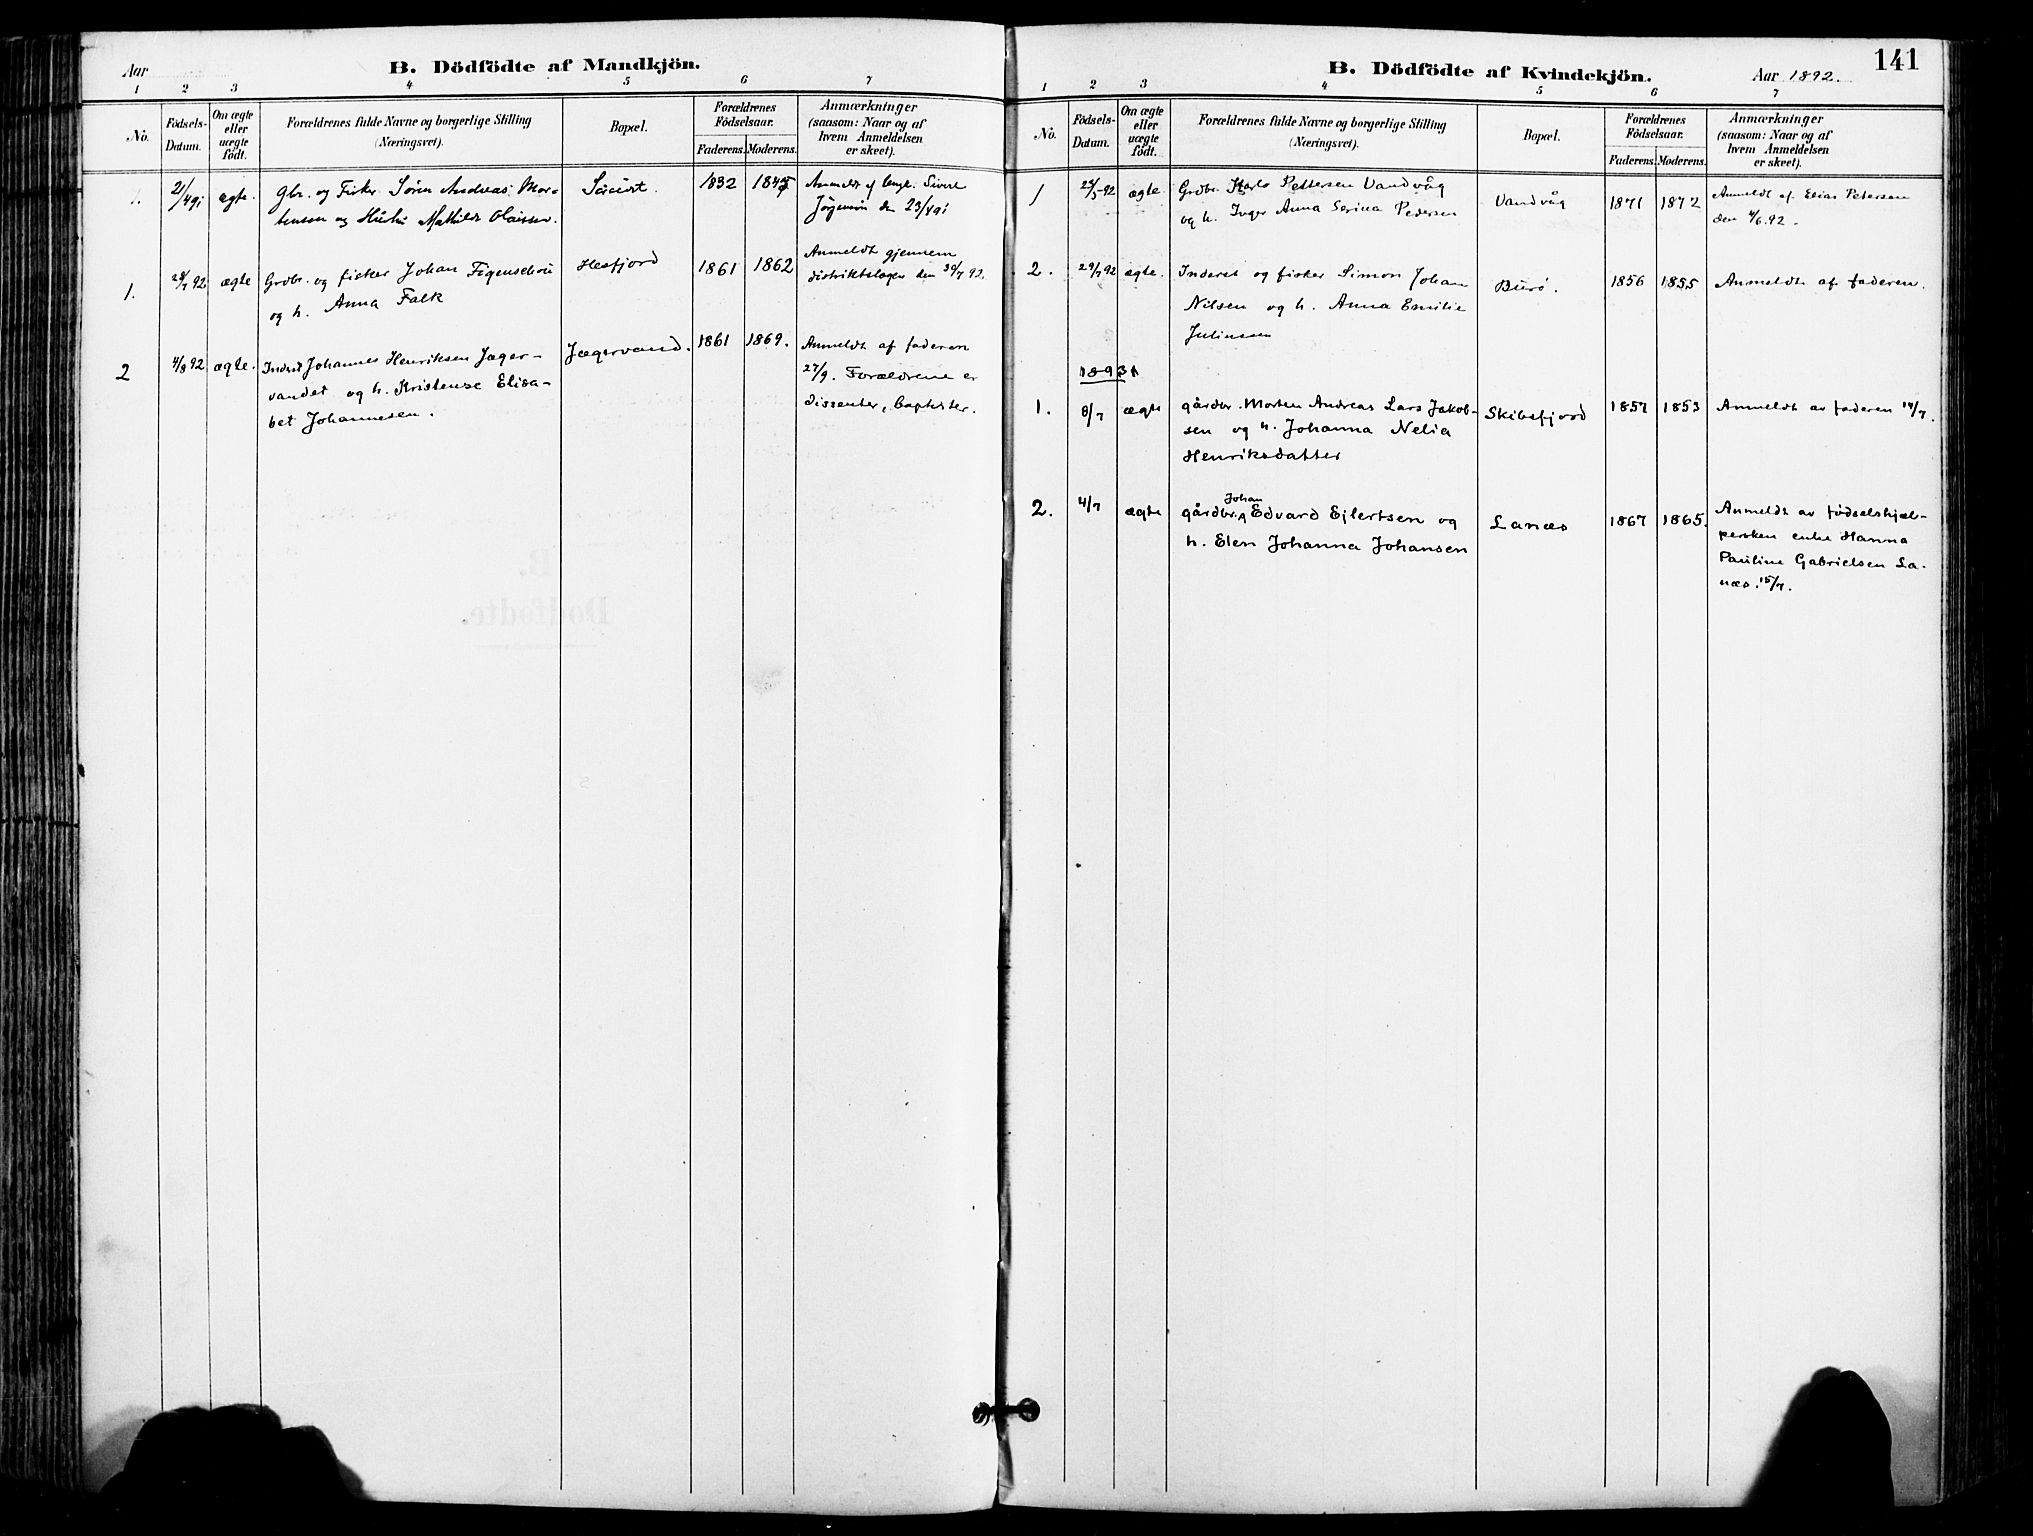 Aar
B. Dödfödte af Mandkjön.
1 2 3 4 5 6 7
No.
Födsels-
Datum.
Om ægte
eller
uægte
födt.
Forældrenes fulde Navne og borgerlige Stilling
(Næringsvei).
Bopæl.
Forældrenes
Födselsaar.
Faderens. Moderens.
Anmærkninger
(saasom: Naar og af
hvem Anmeldelsen
er skeet).
1. 2/4 91 ægte. gbr. og Fisker Søren Andreas Mor-
tensen og Hustru Mathilde Olaissen.
1832
Anmeldt af
Jørgensen den 23/4 91
1. 28/7 92 ægte Grdbr. og fisker Johan Figenschou
og h. Anna Falk
Hesfjord 1861 1862
Anmeldt gjennem
distriktslægen den 30/7 92.
2 4/8 92 ægte. Inderst Johannes Henriksen Jæger-
vandet og h. Kristense Elisa-
bet Johannesen.
Jægervand. 1861 1869.
Anmeldt af faderen
27/9. Forældrene er
dissenter, baptister.
B.
Dödfödte.
141
B. Dödfödte af Kvindekjön.
Aar 1892.
1 2 3 4 5 6 7
No.
Födsels-
Datum.
Om ægte
eller
uægte
födt.
Forældrenes fulde Navne og borgerlige Stilling
(Næringsvei).
Bopæl.
Forældrenes
Födselsaar.
Faderens. Moderens.
Anmærkninger
(saasom: Naar og af
hvem Anmeldelsen
er skeet).
1 25/5-92 ægte. Grdbr. Karlo Pettersen Vandvåg
og h. Inger Anna Serina Pedersen
Vandvåg 1871 1872
Anmeldt af Elias Petersen
den 4/6.92.
2. 29/7 92 ægte. Inderst og fisker Simon Johan
Nilsen og h. Anna Emilie
Juliussen
Burö. 1856 1855 Anmeldt af faderen.
1893
1. 8/7 ægte gårdbr. Morten Andreas Lars Jakob-
sen og h. Johanna Nelia
Henriksdatter
Skibsfjord 1857 1853 Anmeldt av faderen 14/7.
2. 4/7 ægte gårdbr. Johan Edvard Ejlertsen og
h. Elen Johanna Johansen
Lanæs 1867 1865.
Anmeldt av fødselshjæl-
persken enke Hanna
Pauline Gabrielsen La-
næs. 15/7.